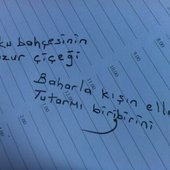 ku bahçesinin
zur çiçeği
Baharla kışın elle
Tutarmı biribirini